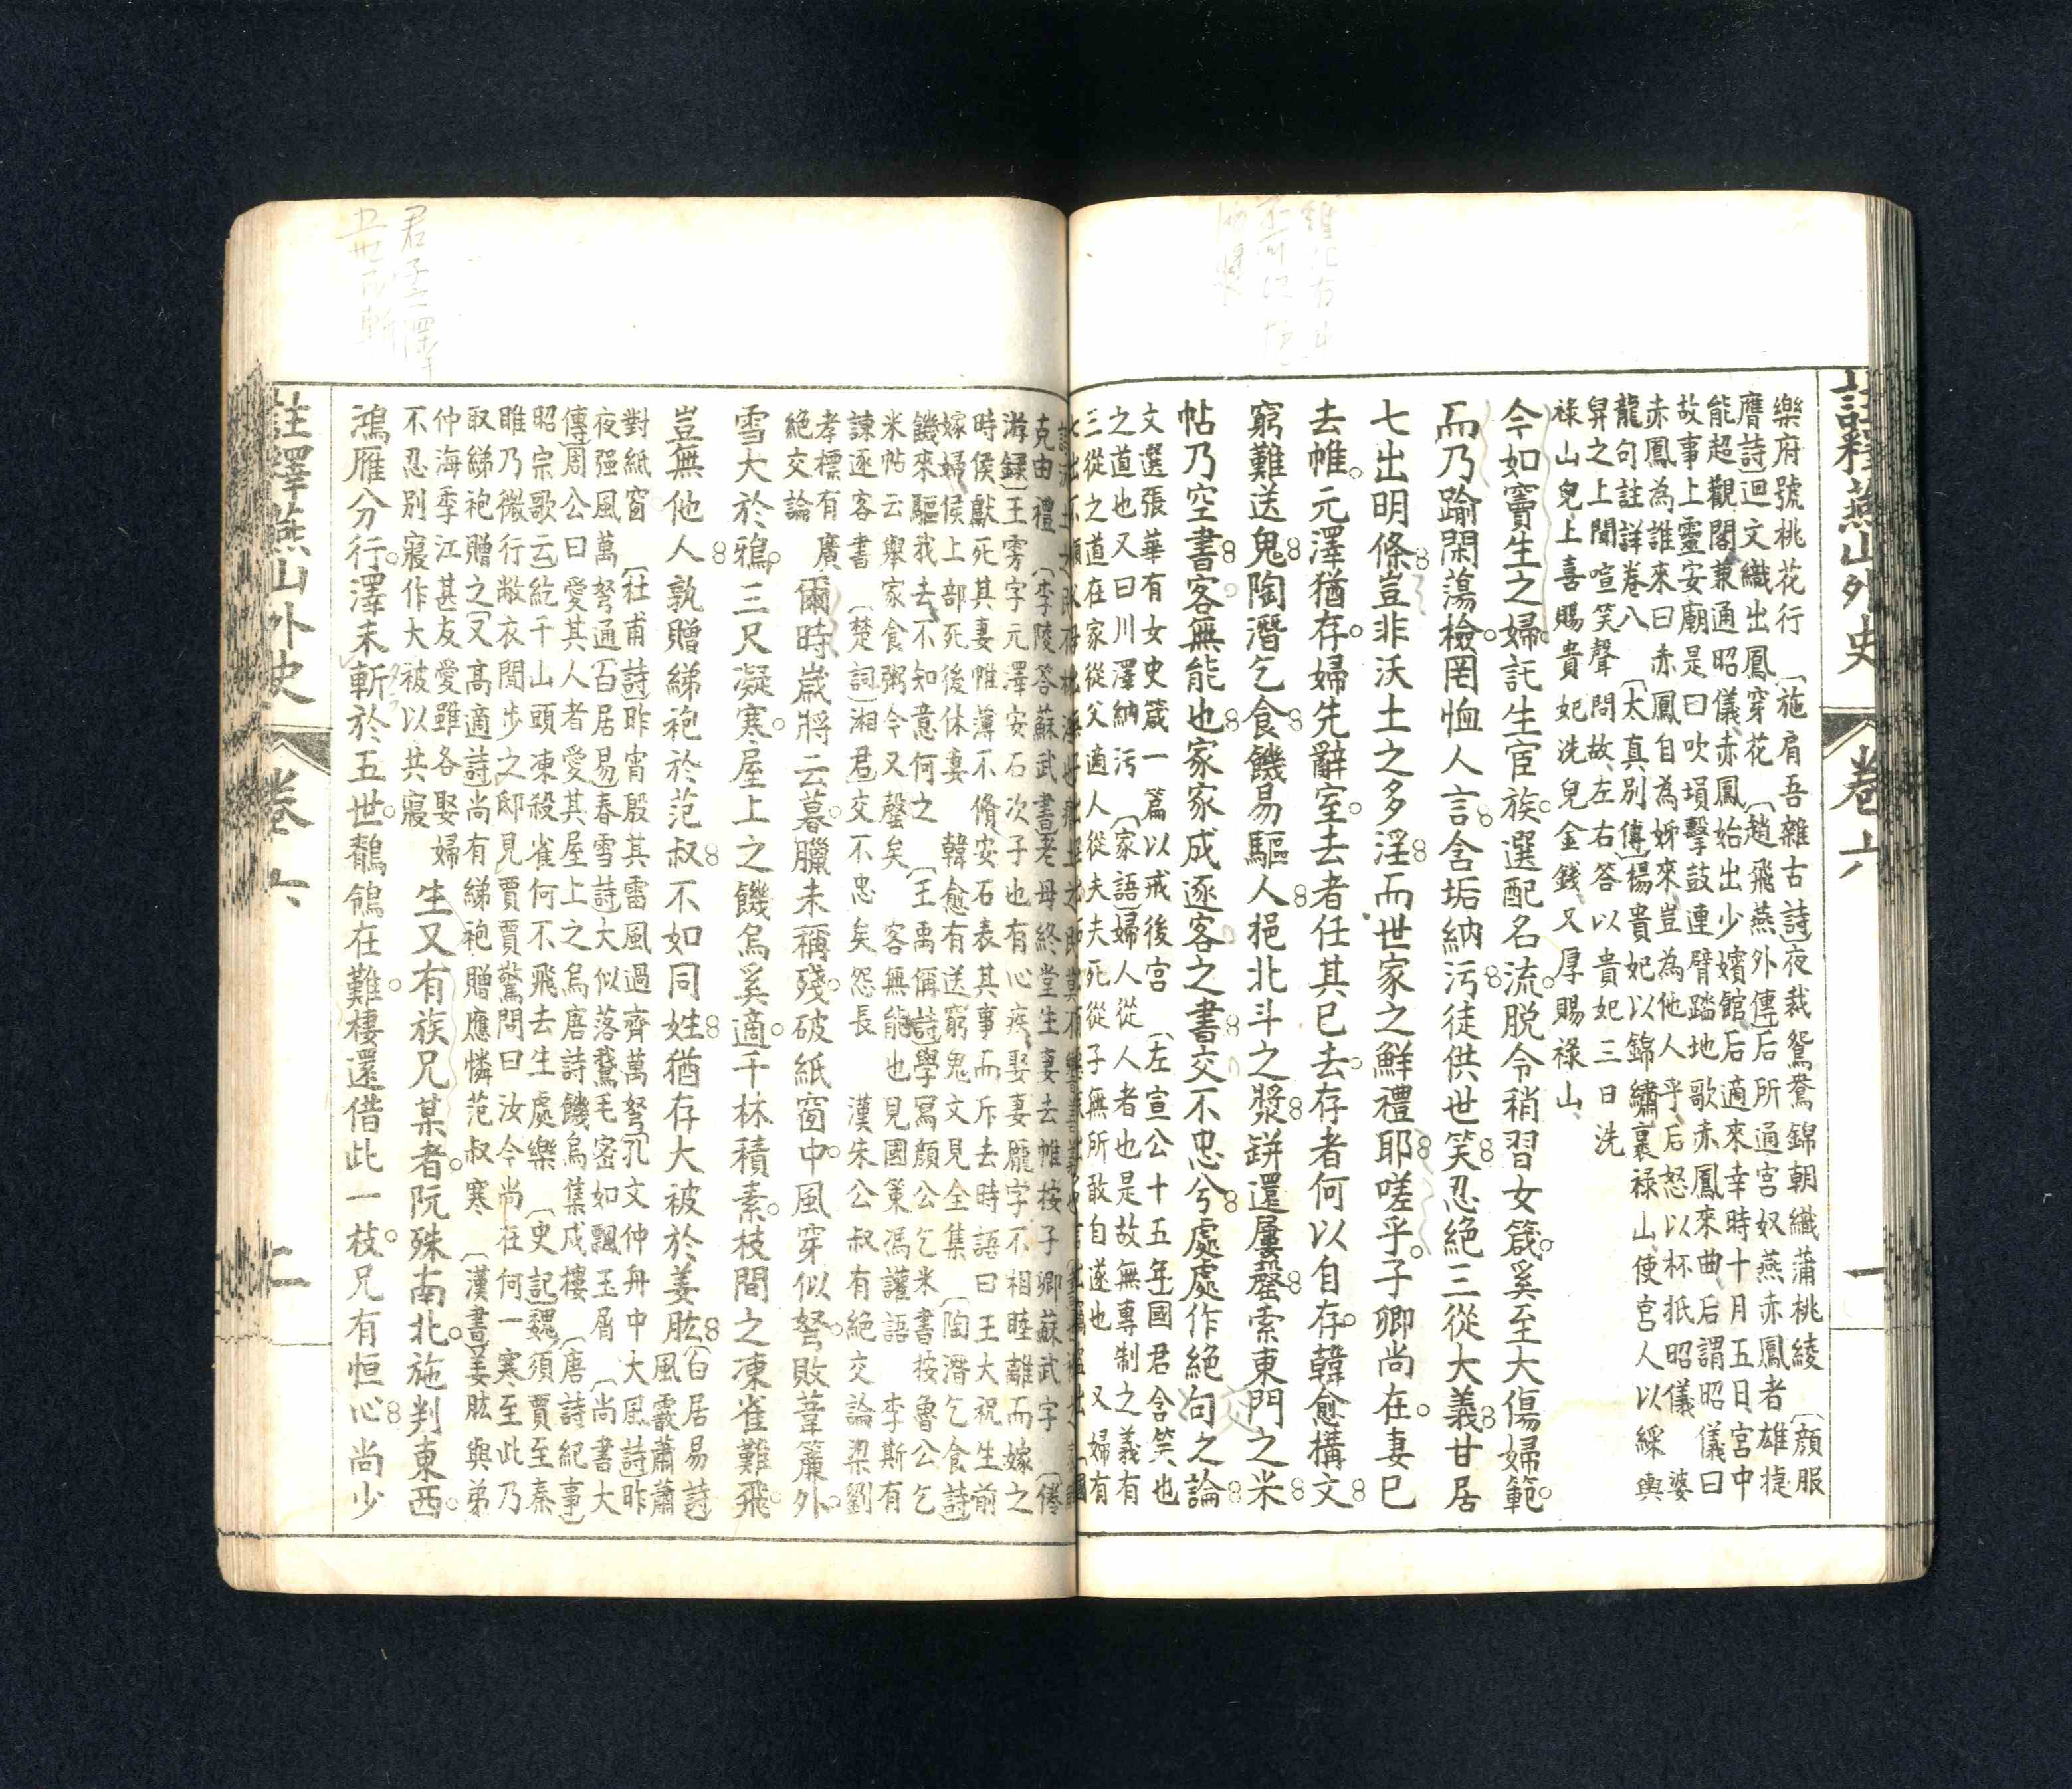 註釋燕山外史 卷六 一
樂府號桃花行 〔施肩吾雜古詩〕夜裁鴛鴦錦朝織蒲桃綾 〔顏服
膺詩〕迴文織出鳳穿花 〔趙飛燕外傳〕后所通宮奴燕赤鳳者雄捷
能超觀閣兼通昭儀赤鳳始出少嬪館后適來幸時十月五日宮中
故事上靈安廟是日吹塤擊鼓連臂踏地歌赤鳳來曲后謂昭儀曰
赤鳳為誰來曰赤鳳自為姊來豈為他人乎后怒以杯抵昭儀 婆
龍句註詳卷八 〔太真別傳〕楊貴妃以錦繡裹祿山使宮人以綵輿
舁之上聞喧笑聲問故左右答以貴妃三日洗
祿山兒上喜賜貴妃洗兒金錢又厚賜祿山
今如竇生之婦託生宦族選配名流脫令稍習女箴奚至大傷婦範
而乃踰閑蕩檢罔恤人言含垢納污徒供世笑忍絕三從大義甘居
七出明條豈非沃土之多淫而世家之鮮禮耶嗟乎子卿尚在妻已
去帷元澤猶存婦先辭室去者任其已去存者何以自存韓愈構文
窮難送鬼陶潛乞食饑易驅人挹北斗之漿缾還屢罄索東門之米
帖乃空書客無能也家家成逐客之書交不忠兮處處作絕句之論
文選張華有女史箴一篇以戒後宮 〔左宣公十五年〕國君含笑也
之道也又曰川澤納污 〔家語〕婦人從人者也是故無專制之義有
三從之道在家從父適人從夫夫死從子無所敢自遂也 又婦有
克由禮 〔李陵答蘇武書〕老母終堂生妻去帷按子卿蘇武字 〔倦
游錄〕王雱字元澤安石次子也有心疾娶妻龎字不相睦離而嫁之
時侯獻死其妻帷薄不脩安石表其事而斥去時語曰王大祝生前
嫁婦侯上部死後休妻 韓愈有送窮鬼文見全集 〔陶潛乞食詩〕
饑來驅我去不知意何之 〔王禹偁詩〕學寫顏公乞米書按魯公乞
米帖云舉家食粥今又罄矣 客無能也見國策馮讙語 李斯有
諫逐客書 〔楚詞〕湘君〕交不忠矣怨長 漢朱公叔有絕交論梁劉
孝標有廣
絕交論
爾時歲將云暮臘未稱殘破紙窗中風穿似弩敗葦簾外
雪大於鴉三尺凝寒屋上之饑烏奚適千林積素枝間之凍雀難飛
豈無他人孰贈綈袍於范叔不如同姓猶存大被於姜肱 〔白居易詩〕
風霰蕭蕭
對紙窗 〔杜甫詩〕昨宵殷其雷風過齊萬弩〔孔文仲舟中大風詩〕昨
夜强風萬弩通〔白居易〕春雪詩〕大似落鵞毛密如飄玉屑 〔尚書大
傳〕周公曰愛其人者愛其屋上之烏唐詩饑烏集戍樓 〔唐詩紀事〕
昭宗歌云紇干山頭凍殺雀何不飛去生處樂 〔史記〕魏須賈至秦
睢乃微行敝衣間步之邸見賈賈驚問曰汝今尚在何一寒至此乃
取綈袍贈之〔又高適詩〕尚有綈袍贈應憐范叔寒 〔漢書〕姜肱與弟
仲海季江甚友愛雖各娶婦
不忍別寢作大被以共寢
生又有族兄某者阮殊南北施判東西
鴻雁分行澤未斬於五世鶺鴒在難棲還借此一枝兄有恒心尚少
註釋燕山外史 卷六 二
君子之澤
五世而斬